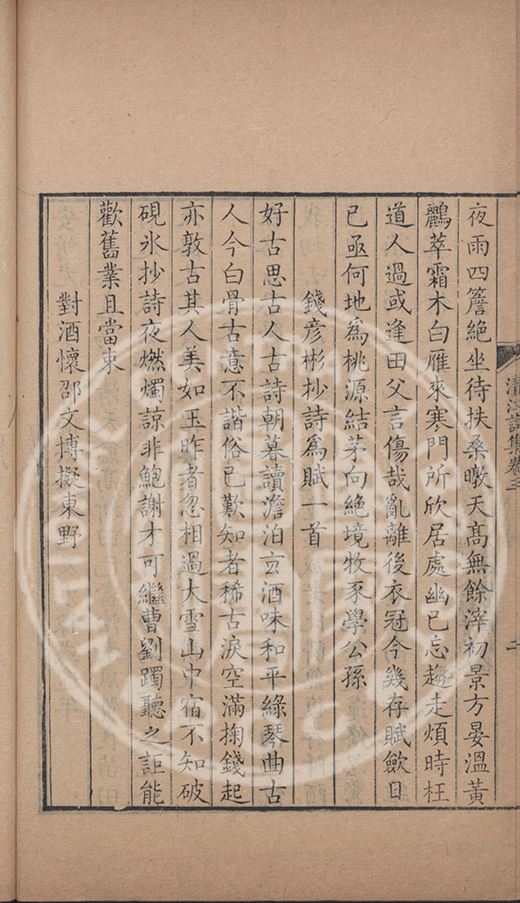 夜雨四簷絶坐待扶桑暾天髙無餘滓初景方晏溫黄
鸝萃霜木白雁來寒門所欣居處幽已忘趨走煩時枉
道人過或逢田父言傷哉亂離後衣冠今幾存賦歛日
已亟何地爲桃源結茅向絶境牧豕學公孫
錢彦彬抄詩爲賦一首
好古思古人古詩朝暮讀澹泊玄酒味和平綠琴曲古
人今白骨古意不諧俗已歎知者稀古淚空滿掬錢起
亦敦古其人美如玉昨者忽相過大雪山中宿不知破
硯氷抄詩夜燃燭諒非鮑謝才可繼曹劉躅聽之詎能
歡舊業且當束
對酒懷邵文博擬東野